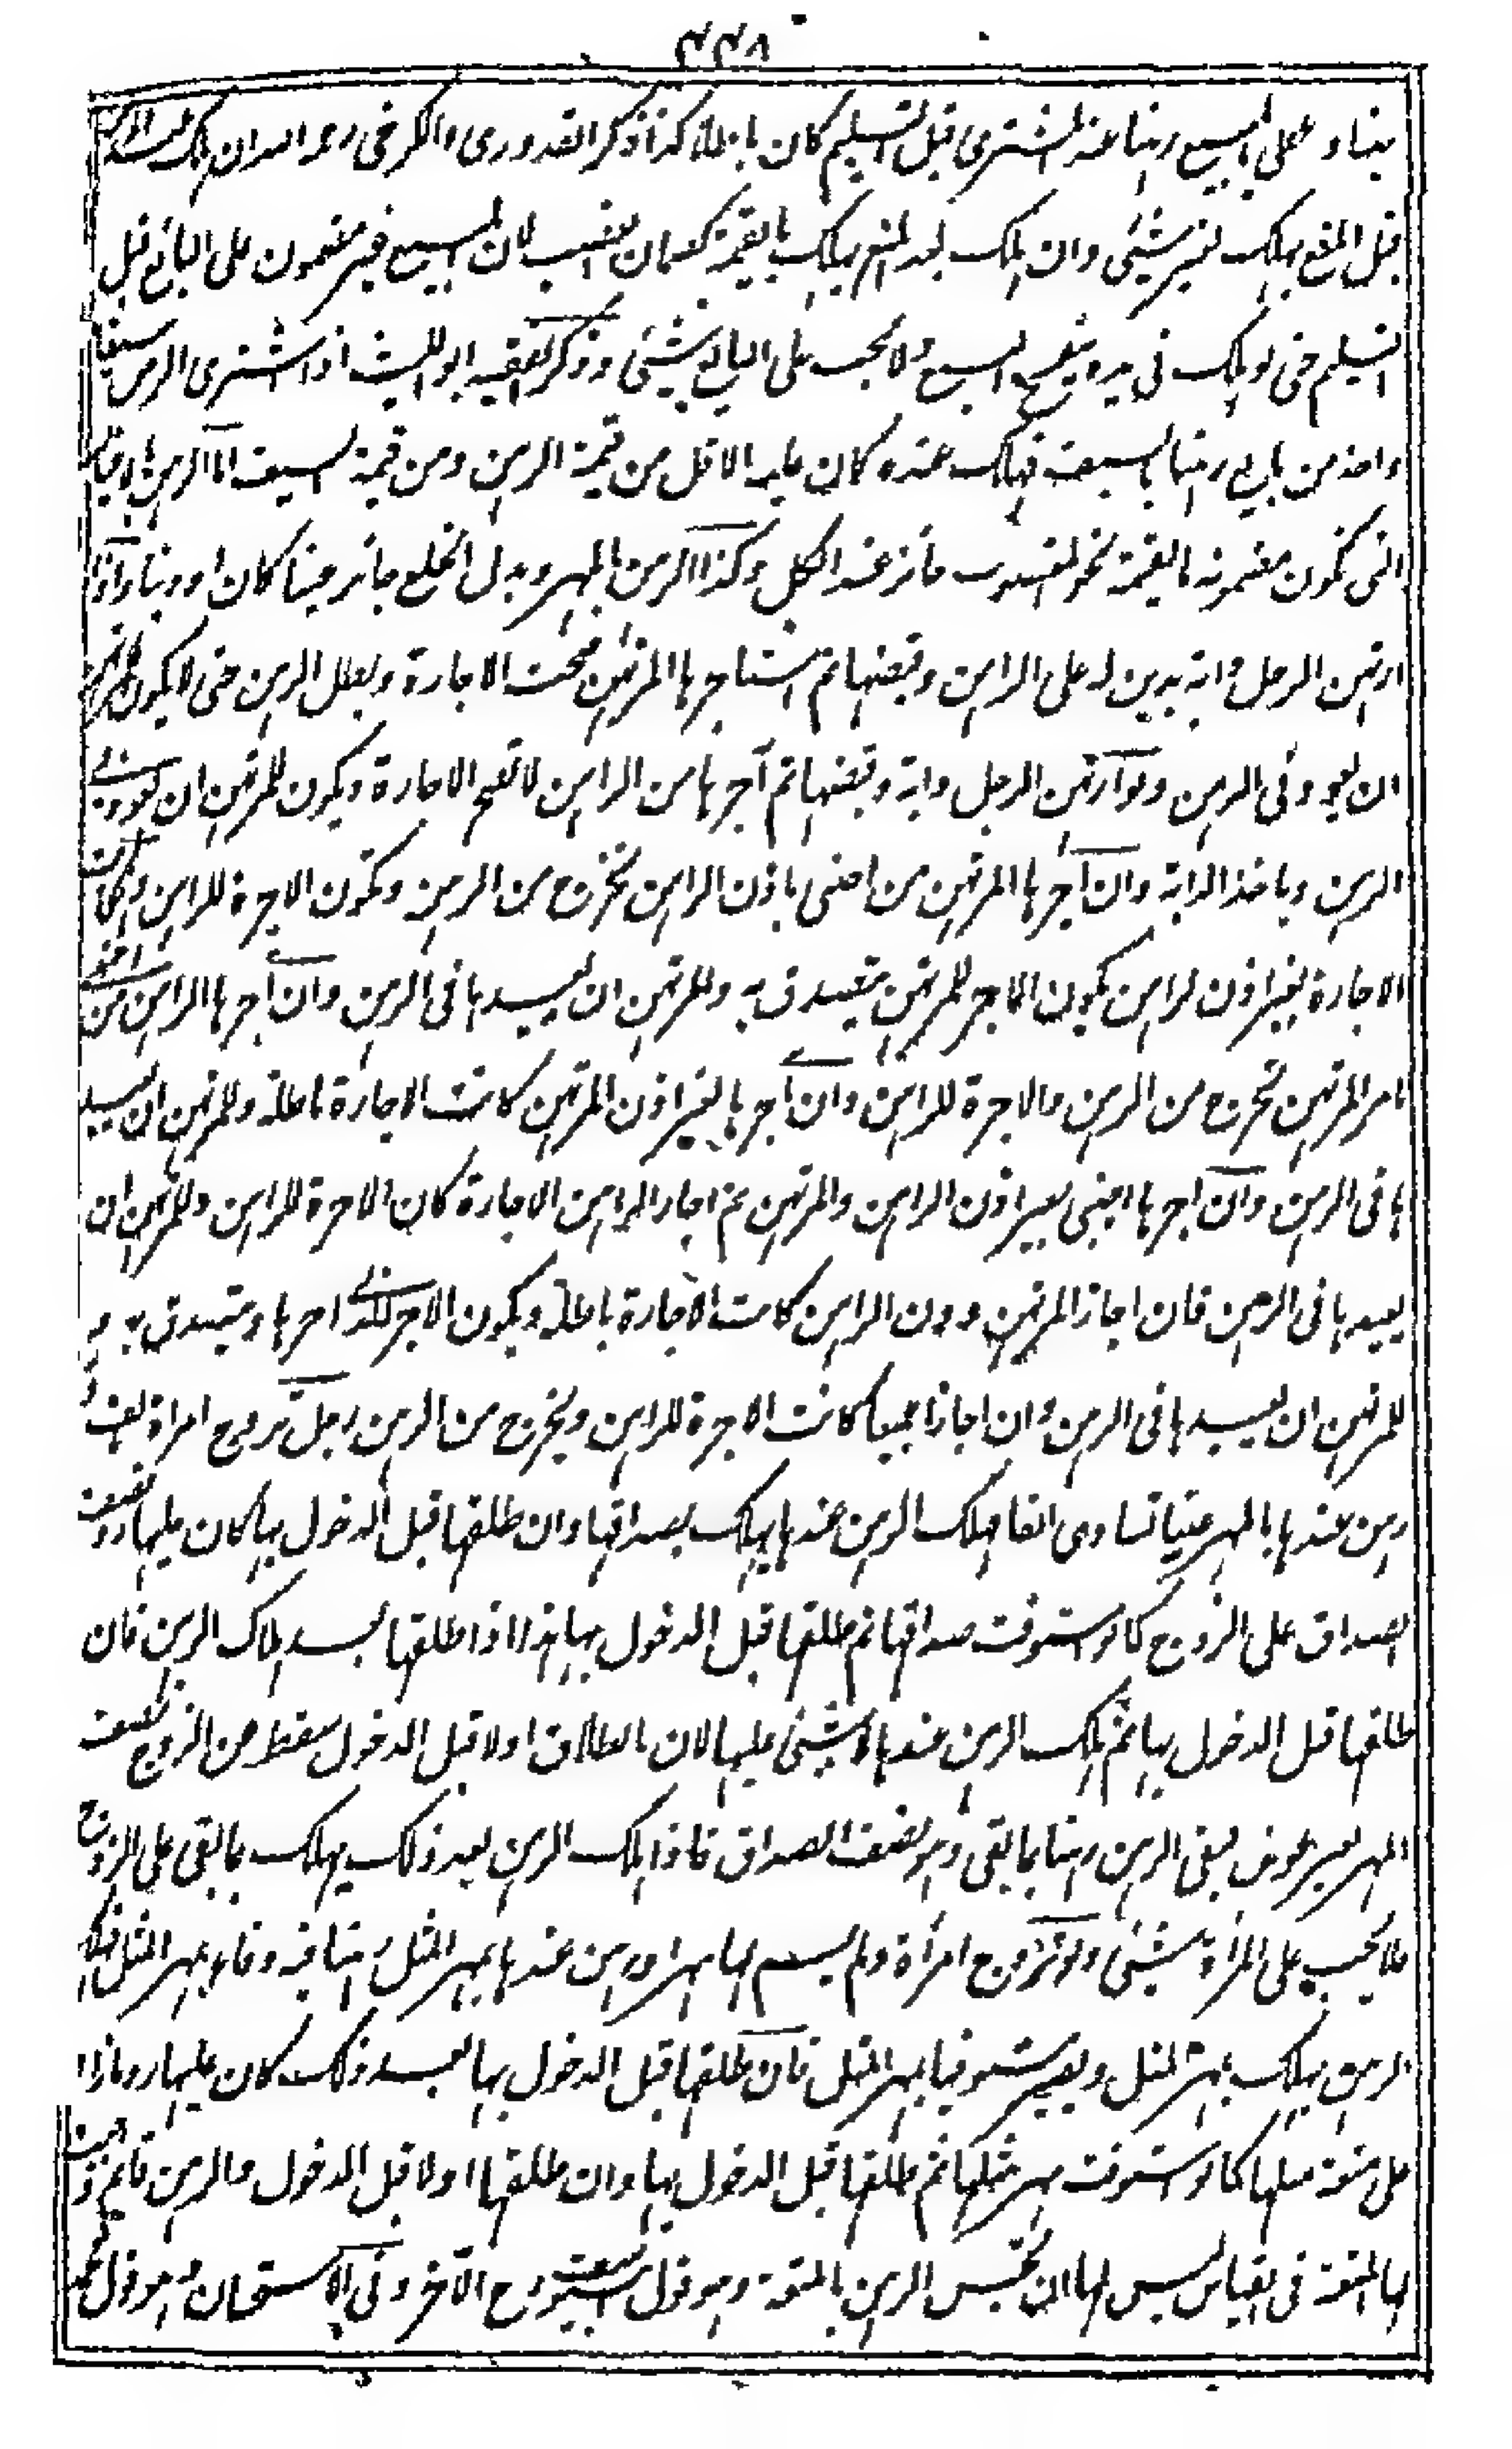 ۴۴۸
بناء على المبيع رهنا عند المشترى قبل التسليم كان باطلا كذا ذكر القدورى والكرخى رحمه الله ان هلك
قبل المنع يهلك بغير شيئ وان هلك بعد المنع يهلك بالقيمة كضمان الغصب لان المبيع غير مضمون على البائع قبل
التسليم حتى لو هلك فى يده ينفسخ البيع ولا يجب على البائع شيئ وذكر الفقيه ابو الليث اذا اشترى الرجل سيفا
واخذ من بايع رهنا بالسيف فهلك عنده كان عليه الاقل من قيمة الرهن ومن قيمة السيف اما الرهن بالاعيان
التى تكون مضمونة بالقيمة نحو المغصوب جائز عند الكل وكذا الرهن بالمهر وبدل الخلع جائز عينا كان او دينا واذا
ارتهن الرجل دابة بدين له على الراهن وقبضها ثم استاجرها المرتهن صحت الاجارة وبطل الرهن حتى لا يكون للمرتهن
ان يعود فى الرهن ولو ارتهن الرجل دابة وقبضها ثم آجرها من الراهن لا تصح الاجارة ويكون للمرتهن ان يعود فى
الرهن وياخذ الدابة وان آجرها المرتهن من اجنبى باذن الراهن تخرج من الرهن وتكون الاجرة للراهن وان كانت
الاجارة بغير اذن الراهن يكون الاجر للمرتهن يتصدق به وللمرتهن ان يعيدها فى الرهن وان آجرها الراهن من اجنبى
بامر المرتهن تخرج من الرهن والاجرة للراهن وان آجرها بغير اذن المرتهن كانت الاجارة باطلة وللمرتهن ان يعيد
ها فى الرهن وان اجرها اجنبى بغير اذن الراهن والمرتهن ثم اجاز الراهن الاجارة كان الاجرة للراهن وللمرتهن ان
يعيدها فى الرهن فان اجاز المرتهن دون الراهن كانت الاجارة باطلة ويكون الاجر للذى اجرها ويتصدق به و
للمرتهن ان يعيدها فى الرهن وان اجازا جميعا كانت الاجرة للراهن ويخرج من الرهن رجل تزوج امراة بالف و
رهن عندها بالمهر عينا تساوى الفا فهلك الرهن عندها يهلك بصداقها وان طلقها قبل الدخول بها كان عليها رد نصف
الصداق على الزوج كما لو استوفت صداقها ثم طلقها قبل الدخول بها هذا اذا طلقها بعد هلاك الرهن فان
طلقها قبل الدخول بها ثم هلك الرهن عندها لا شيئ عليها لان بالطلاق اولا قبل الدخول سقط عن الزوج نصف
المهر بغير عوض فبقى الرهن رهنا بما بقى وهو نصف الصداق فاذا هلك الرهن بعد ذلك يهلك بما بقى على الزوج
فلا يجب على المرأة شيئ ولو تزوج امرأة ولم يسم لها مهرا ورهن عندها بمهر المثل رهنا فيه وفاء بمهر المثل فهلك
الرهن يهلك بمهر المثل ويصير مستوفيا بمهر المثل فان طلقها قبل الدخول بها بعد ذلك كان عليها رد ما زاد
على متعة مثلها كما لو استوفت مهر مثلها ثم طلقها قبل الدخول بها وان طلقها اولا قبل الدخول والرهن قايم وجبت
لها المتعة فى القياس ليس لها ان تحبس الرهن بالمتعة وهو قول ابى يوسف الآخر وفى الاستحسان وهو قول محمد